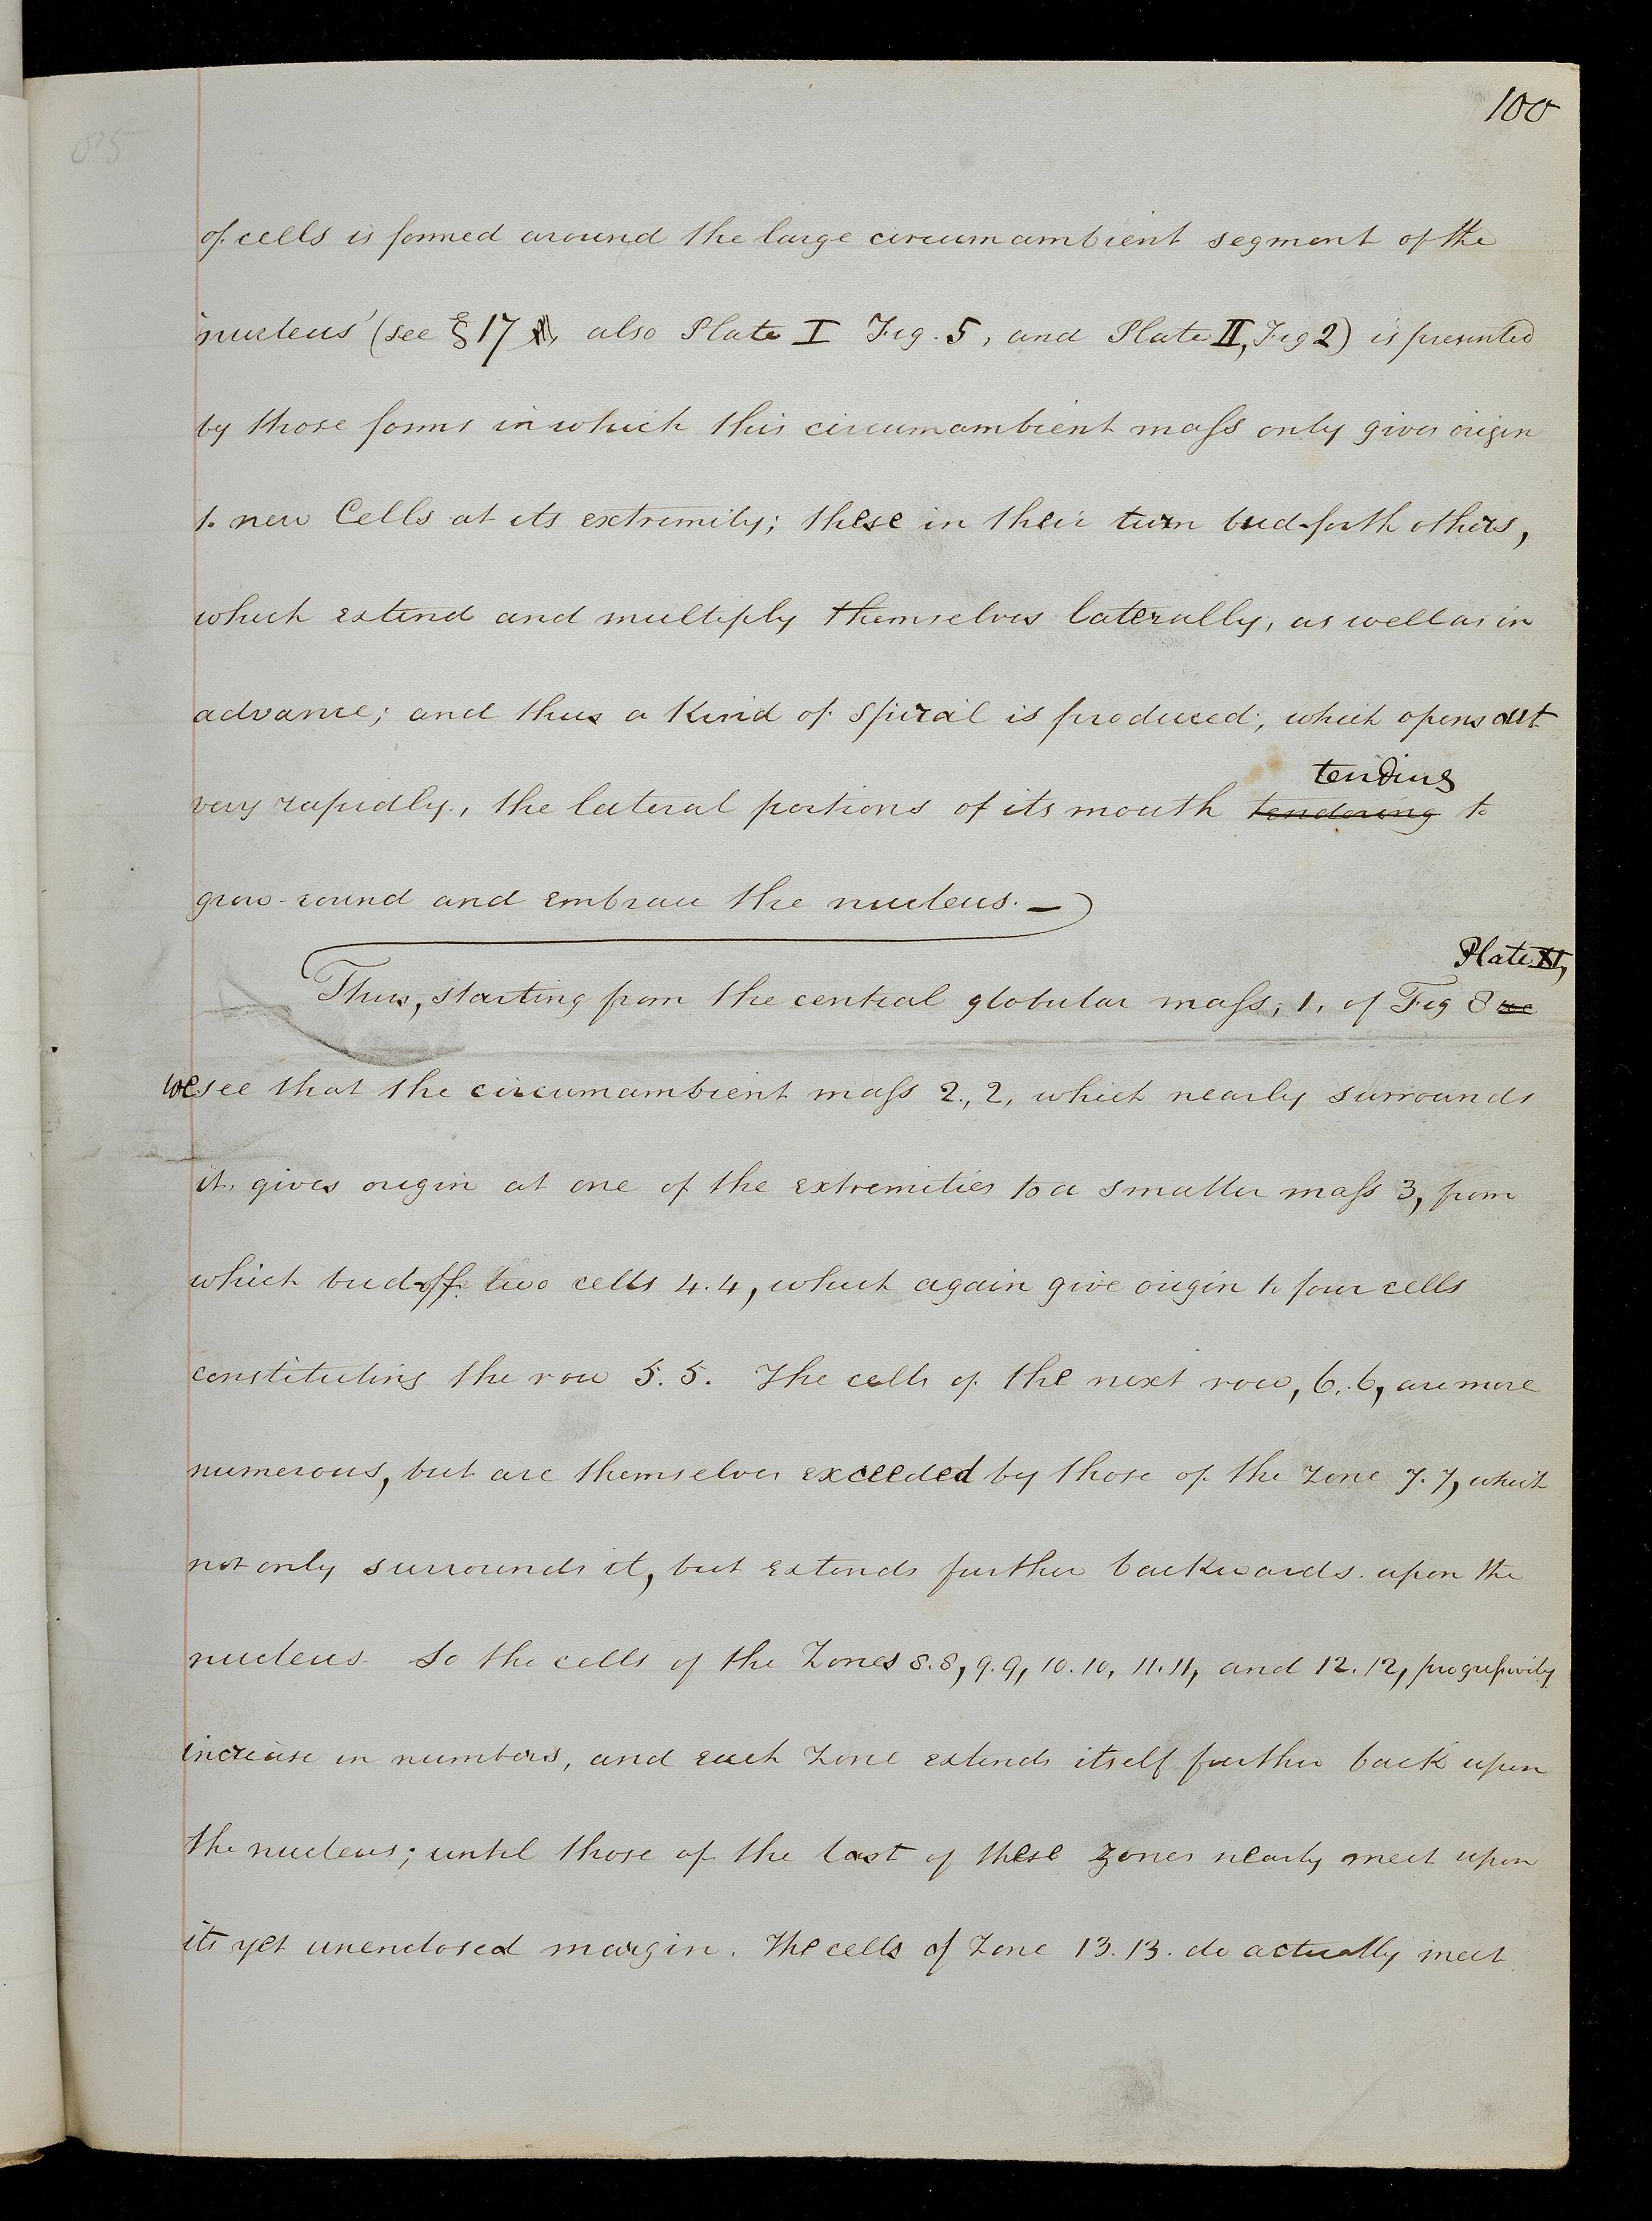 100
of cells is formed around the large circumambient segment of the
'nucleus' (see § 17, also Plate I Fig. 5, and Plate II, Fig 2) is presented
by those forms in which this circumambient mass only gives origin
to new Cells at its extremity; these in their turn bud-forth others,
which extend and multiply themselves laterally, as well as in
advance; and thus a kind of spiral is produced, which opens out
tending
very rapidly, the lateral portions of its mouth tendering to
grow-round and embrace the nucleus. —
Plate
Thus, starting from the central globular mass, 1, of Fig 8 we
we see that the circumambient mass 2, 2, which nearly surrounds
it, gives origin at one of the extremities to a smaller mass 3, from
which bud-off two cells 4.4, which again give origin to four cells
constituting the row 5.5. The cells of the next row, 6.6, are more
numerous, but are themselves exceeded by those of the zone 7.7, which
not only surrounds it, but extends further backwards upon the
nucleus. So the cells of the Zones 8.8, 9.9, 10.10, 11.11, and 12.12, progressively
increase in numbers, and each zone extends itself further back upon
the nucleus; until those of the last of these zones nearly meet upon
its yet unenclosed margin. The cells of Zone 13.13. do actually meet